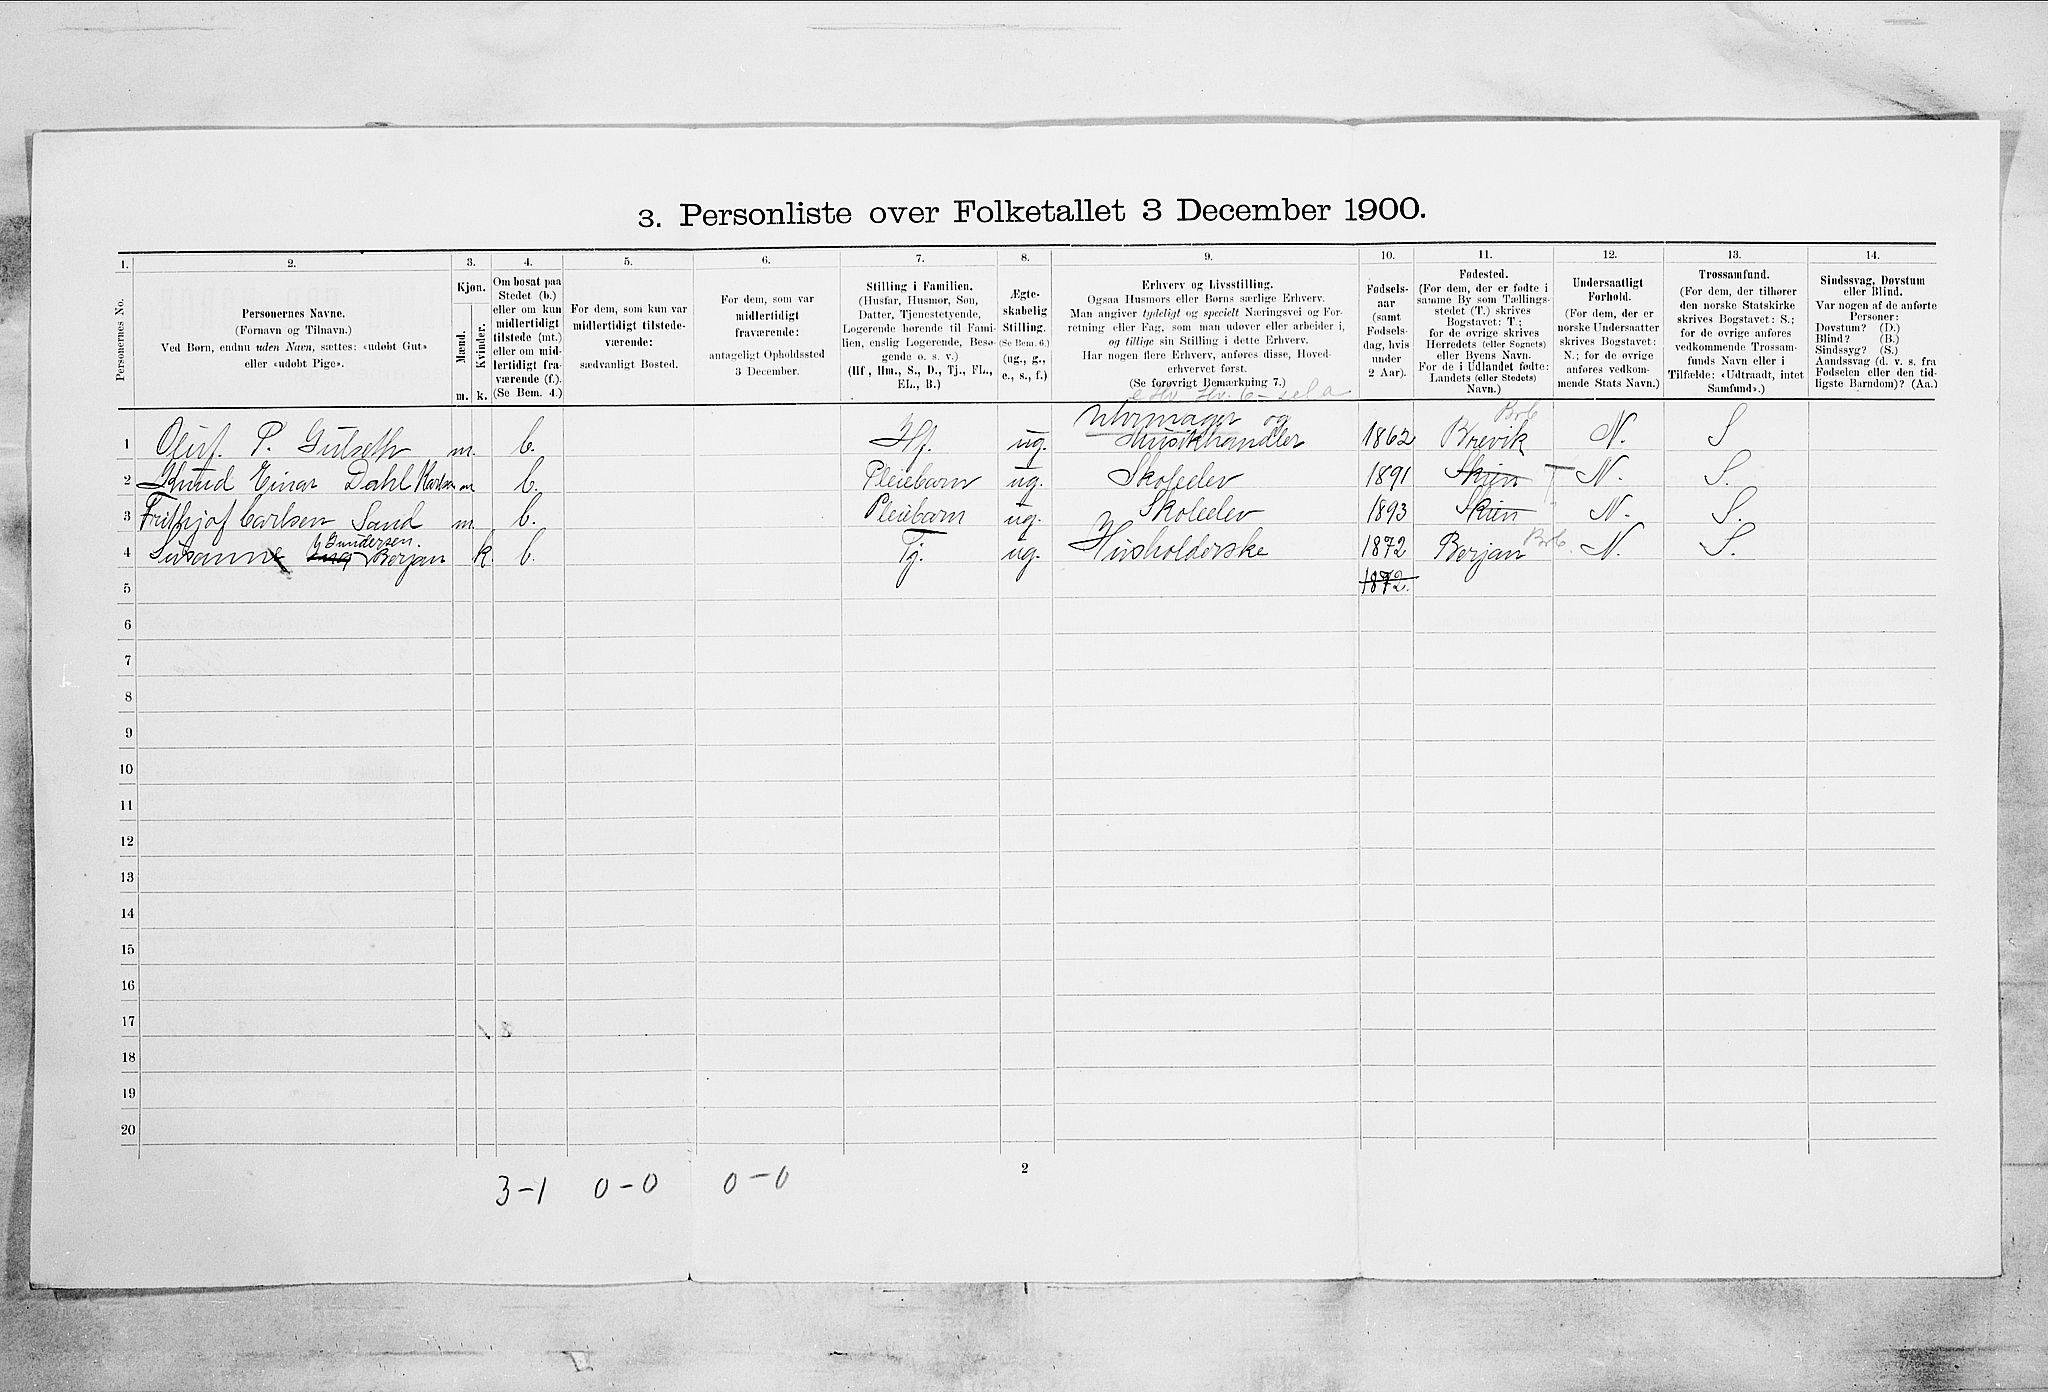 3. Personliste over Folketallet 3 December 1900.
1. 2. 3. 4. 5. 6. 7. 8. 9. 10. 11. 12. 13. 14.
Personernes No.
Personernes Navne.
(Fornavn og Tilnavn.)
Ved Børn, endnu uden Navn, sættes: «udøbt Gut»
eller «udøbt Pige».
Kjøn.
Mænd.
Kvinder.
m. k.
Om bosat paa
Stedet (b.)
eller om kun
midlertidigt
tilstede (mt.)
eller om mid-
lertidigt fra-
værende (f.).
(Se Bem. 4.)
For dem, som kun var
midlertidigt tilstede-
værende:
sædvanligt Bosted.
For dem, som var
midlertidigt
fraværende:
antageligt Opholdssted
3 December.
Stilling i Familien.
(Husfar, Husmor, Søn,
Datter, Tjenestetyende,
Logerende hørende til Fami-
lien, enslig Logerende, Besø-
gende o. s. v.)
(Hf., Hm., S., D., Tj., FL.,
EL., B.)
Ægte-
skabelig
Stilling.
(Se Bem. 6.)
(ug., g.,
e., s., f.)
Erhverv og Livsstilling.
Ogsaa Husmors eller Børns særlige Erhverv.
Man angiver tydeligt og specielt Næringsvei og For-
retning eller Fag, som man udøver eller arbeider i,
og tillige sin Stilling i dette Erhverv.
Har nogen flere Erhverv, anføres disse, Hoved-
erhvervet først.
(Se forøvrigt Bemærkning 7.)
Fødsels-
aar
(samt
Fødsels-
dag, hvis
under
2 Aar).
Fødested.
(For dem, der er fødte i
samme By som Tællings-
stedet (T.) skrives
Bogstavet: T.;
for de øvrige skrives
Herredets (eller Sognets)
eller Byens Navn.
For de i Udlandet fødte:
Landets (eller Stedets)
Navn.)
Undersaatligt
Forhold.
(For dem, der er
norske Undersaatter
skrives Bogstavet:
N.; for de øvrige
anføres vedkom-
mende Stats Navn.)
Trossamfund.
(For dem, der tilhører
den norske Statskirke
skrives Bogstavet: S.;
for de øvrige anføres
vedkommende Trossam-
funds Navn eller i
Tilfælde: «Udtraadt, intet
Samfund».)
Sindssvag, Døvstum
eller Blind.
Var nogen af de anførte
Personer:
Døvstum? (D.)
Blind? (B.)
Sindssyg? (S.)
Aandssvag (d. v. s. fra
Fødselen eller den tid-
ligste Barndom)? (Aa.)
Uhrmager og
1 P. Gulseth m. b. Hf. ug. Musikhandler 1862 Brevik N. S
2 Knud Einar Dahl Karlsen m b. Pleiebarn ug. Skoleelev 1891 Skien T N. S.
3 Frithjof Carlsen Sand m. b. Pleiebarn ug. Skoleelev 1893 Skien N. S.
Gundersen.
4 Susanne Berjan k. b. Tj. ug. Husholderske 1872 Berjan N. S.
5 1872.
6
7
8
9
10
11
12
13
14
15
16
17
18
19
20
3-1 0-0 0-0
2